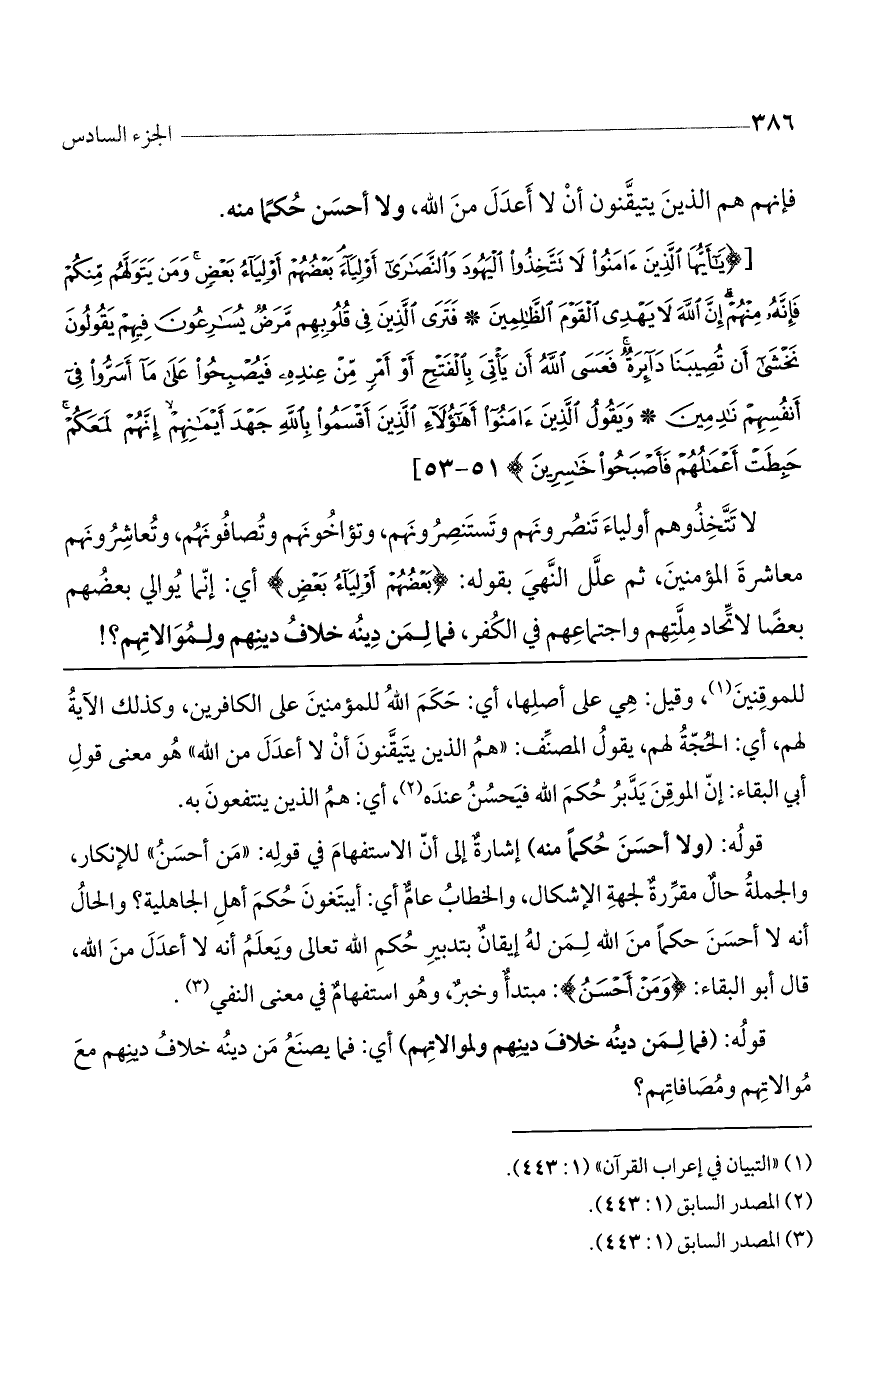 ٣٨٦ الجزء السادس
فإنهم هم الذينَ يتيقَّنون أنْ لا أَعدَلَ منَ الله، ولا أحسَن حُكمًا منه.
[﴿يَٰٓأَيُّهَا ٱلَّذِينَ ءَامَنُوا۟ لَا تَتَّخِذُوا۟ ٱلْيَهُودَ وَٱلنَّصَٰرَىٰٓ أَوْلِيَآءَۘ بَعْضُهُمْ أَوْلِيَآءُ بَعْضٍۚ وَمَن يَتَوَلَّهُم مِّنكُمْ
فَإِنَّهُۥ مِنْهُمْۗ إِنَّ ٱللَّهَ لَا يَهْدِى ٱلْقَوْمَ ٱلظَّٰلِمِينَ * فَتَرَى ٱلَّذِينَ فِى قُلُوبِهِم مَّرَضٌ يُسَٰرِعُونَ فِيهِمْ يَقُولُونَ
نَخْشَىٰٓ أَن تُصِيبَنَا دَآئِرَةٌۚ فَعَسَى ٱللَّهُ أَن يَأْتِىَ بِٱلْفَتْحِ أَوْ أَمْرٍ مِّنْ عِندِهِۦ فَيُصْبِحُوا۟ عَلَىٰ مَآ أَسَرُّوا۟ فِىٓ
أَنفُسِهِمْ نَٰدِمِينَ * وَيَقُولُ ٱلَّذِينَ ءَامَنُوٓا۟ أَهَٰٓؤُلَآءِ ٱلَّذِينَ أَقْسَمُوا۟ بِٱللَّهِ جَهْدَ أَيْمَٰنِهِمْۙ إِنَّهُمْ لَمَعَكُمْۚ
حَبِطَتْ أَعْمَٰلُهُمْ فَأَصْبَحُوا۟ خَٰسِرِينَ﴾ ٥١-٥٣]
لا تَتَّخِذُوهم أولياءَ تَنصُرونَهم وتَستَنصِرُونَهم، وتؤاخُونَهم وتُصافُونَهُم، وتُعاشِرُونَهم
معاشرةَ المؤمنينَ، ثم علَّل النَّهيَ بقوله: ﴿بَعْضُهُمْ أَوْلِيَآءُ بَعْضٍ﴾ أي: إنّما يُوالي بعضُهم
بعضًا لاتِّحاد مِلَّتِهم واجتماعِهم في الكُفر، فما لِـمَن دِينُه خلافُ دينِهم ولِـمُوَالاتِهم؟!
للموقِنينَ(١)، وقيل: هِي على أصلِها، أي: حَكَمَ اللهُ للمؤمنينَ على الكافرين، وكذلك الآيةُ
لهم، أي: الحُجّةُ لهم، يقولُ المصنِّف: «همُ الذين يتَيقَّنونَ أنْ لا أعدَلَ من الله» هُو معنى قولِ
أبي البقاء: إنّ الموقِنَ يَدَّبرُ حُكمَ الله فيَحسُنُ عندَه(٢)، أي: همُ الذين ينتفعونَ به.
قولُه: (ولا أحسَنَ حُكماً منه) إشارةٌ إلى أنّ الاستفهامَ في قولِه: «مَن أحسَنُ» للإنكار،
والجملةُ حالٌ مقرِّرةٌ لجهةِ الإشكال، والخطابُ عامٌّ أي: أيبتَغونَ حُكمَ أهلِ الجاهلية؟ والحالُ
أنه لا أحسَنَ حكماً منَ الله لِـمَن لهُ إيقانٌ بتدبيرِ حُكمِ الله تعالى ويَعلَمُ أنه لا أعدَلَ منَ الله،
قال أبو البقاء: ﴿وَمَنْ أَحْسَنُ﴾: مبتدأٌ وخبرٌ، وهُو استفهامٌ في معنى النفي(٣).
قولُه: (فما لِـمَن دينُه خلافَ دينِهم ولموالاتِهم) أي: فما يصنَعُ مَن دينُه خلافُ دينِهم معَ
مُوالاتِهم ومُصَافاتِهم؟
(١) «التبيان في إعراب القرآن» (١: ٤٤٣).
(٢) المصدر السابق (١: ٤٤٣).
(٣) المصدر السابق (١: ٤٤٣).